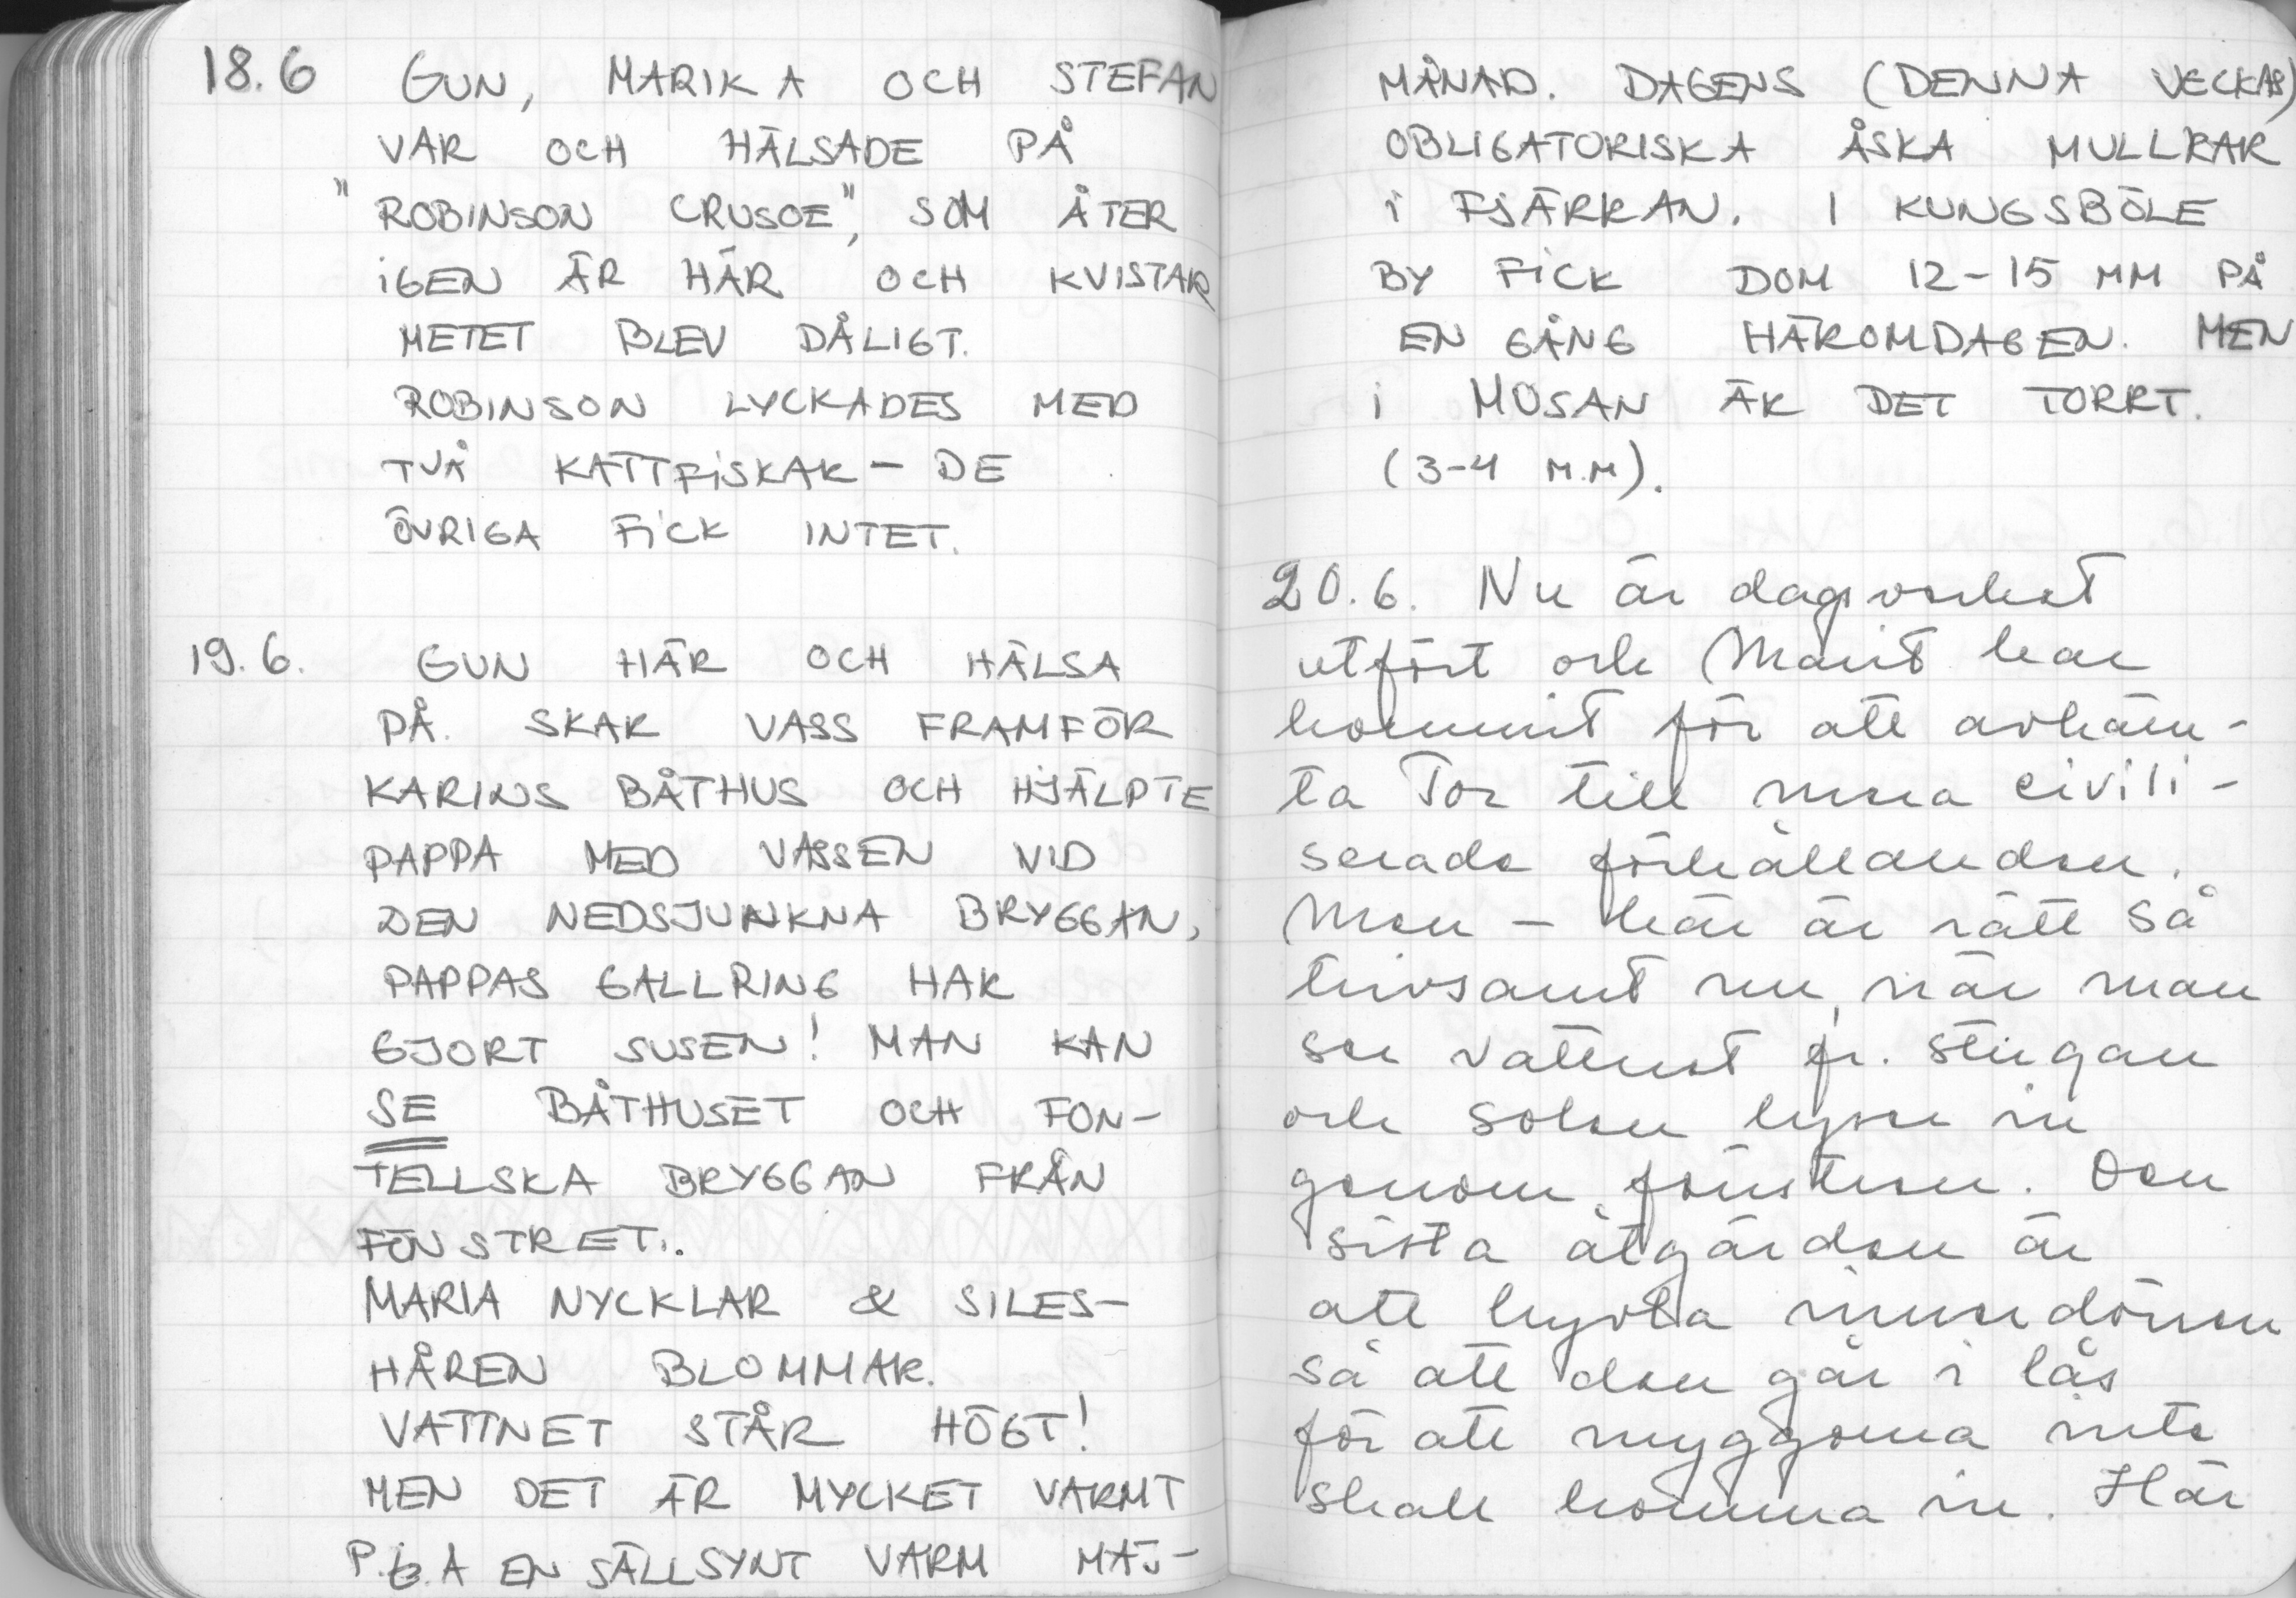 18.6 GUN, MARIKA OCH STEFAN
VAR OCH HÄLSADE PÅ
"ROBINSON CRUSOE", SOM ÅTER
IGEN ÄR HÄR OCH KVISTAR
METET BLEV DÅLIGT.
ROBINSON LYCKADES MED
TVÅ KATTFISKAR – DE
ÖVRIGA FICK INTET.
19.6. GUN HÄR OCH HÄLSA
PÅ. SKAR VASS FRAMFÖR
KARINS BÅTHUS OCH HJÄLPTE
PAPPA MED VASSEN VID
DEN NEDSJUNKNA BRYGGAN,
PAPPAS GALLRING HAR
GJORT SUSEN! MAN KAN
SE BÅTHUSET OCH FON-
TELLSKA BRYGGAN FRÅN
FÖNSTRET.
MARIA NYCKLAR & SILES-
HÅREN BLOMMAR.
VATTNET STÅR HÖGT!
MEN DET ÄR MYCKET VARMT
P.G.A EN SÄLLSYNT VARM MAJ-
MÅNAD. DAGENS (DENNA VECKAS)
OBLIGATORISKA ÅSKA MULLRAR
I FJÄRRAN. I KUNGSBÖLE
BY FICK DOM 12-15 MM PÅ
EN GÅNG HÄROMDAGEN. MEN
I MOSAN ÄR DET TORRT.
(3-4 M.M).
20.6. Nu är dagsverket
utfört och Marit har
kommit för att avhäm-
ta Tor till mera civili-
serade förhållanden.
Men – här är rätt så
trivsamt nu, när man
ser vattnet fr. stugan
och solen lyser in
genom fönstren. Den
sista åtgärden är
att hyvla innerdörren
så att den går i lås
för att myggorna inte
skall komma in. Här